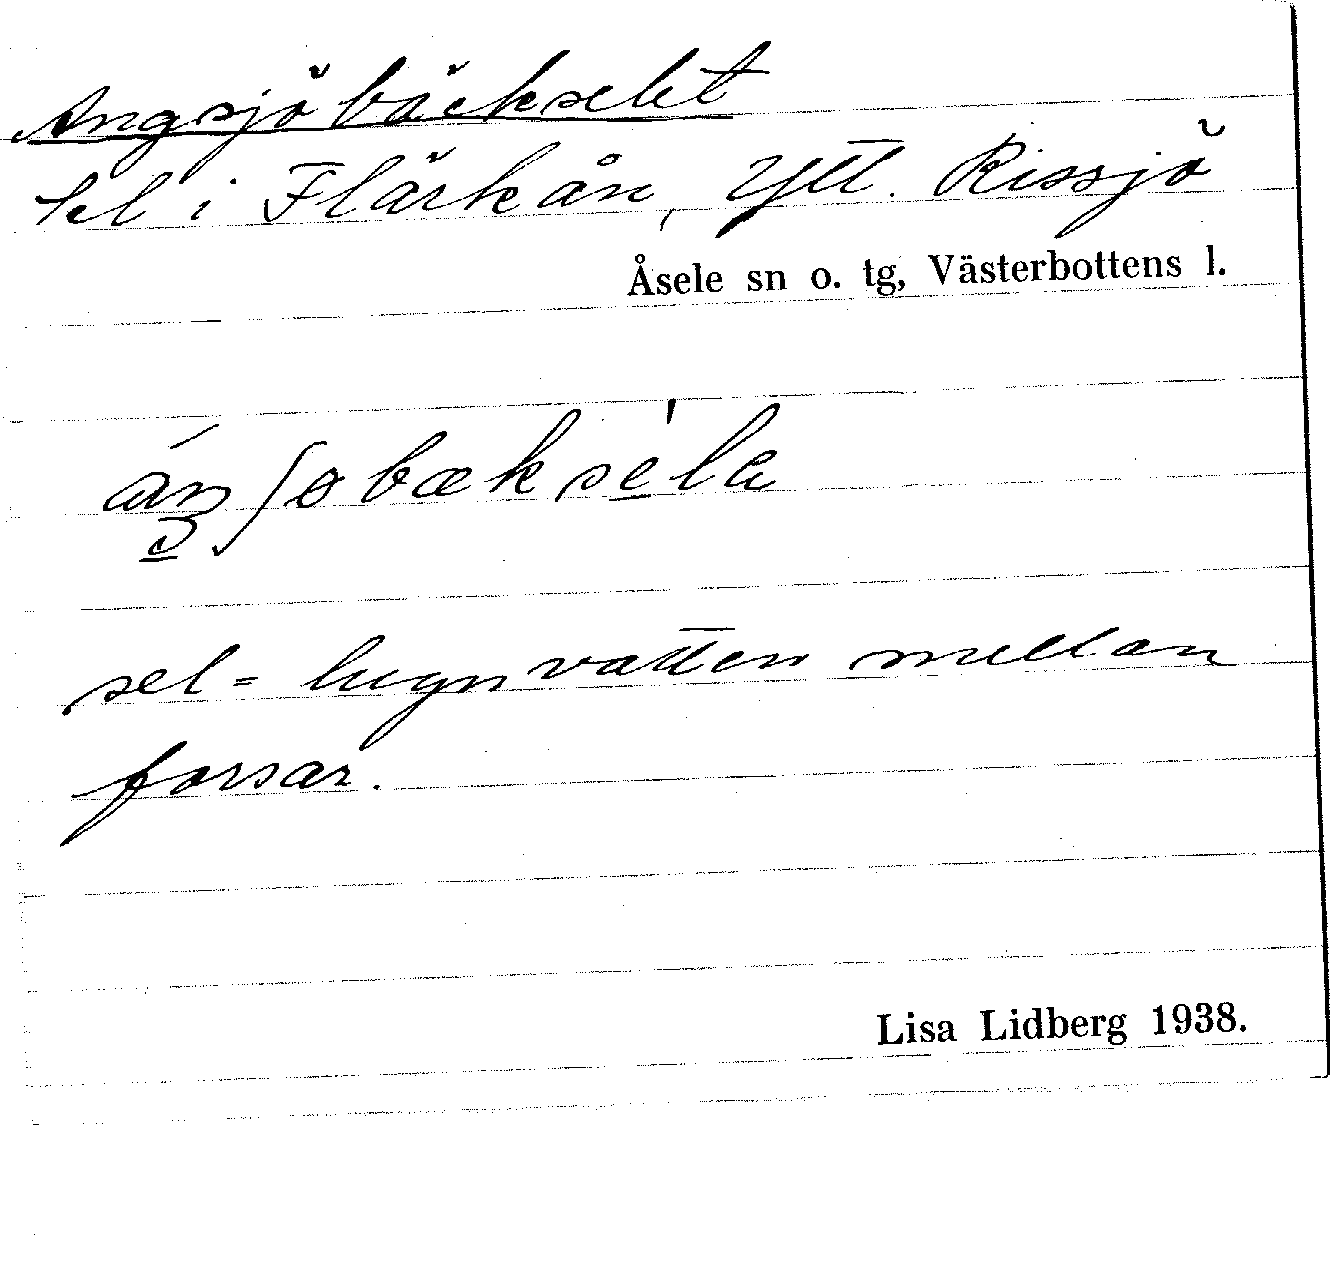 Angsjöbäckselet
Sel i Flärkån, Ytt. Rissjö
Åsele sn o. tg, Västerbottens l.
sel = lugnvatten mellan
forsar.
Lisa Lidberg 1938.